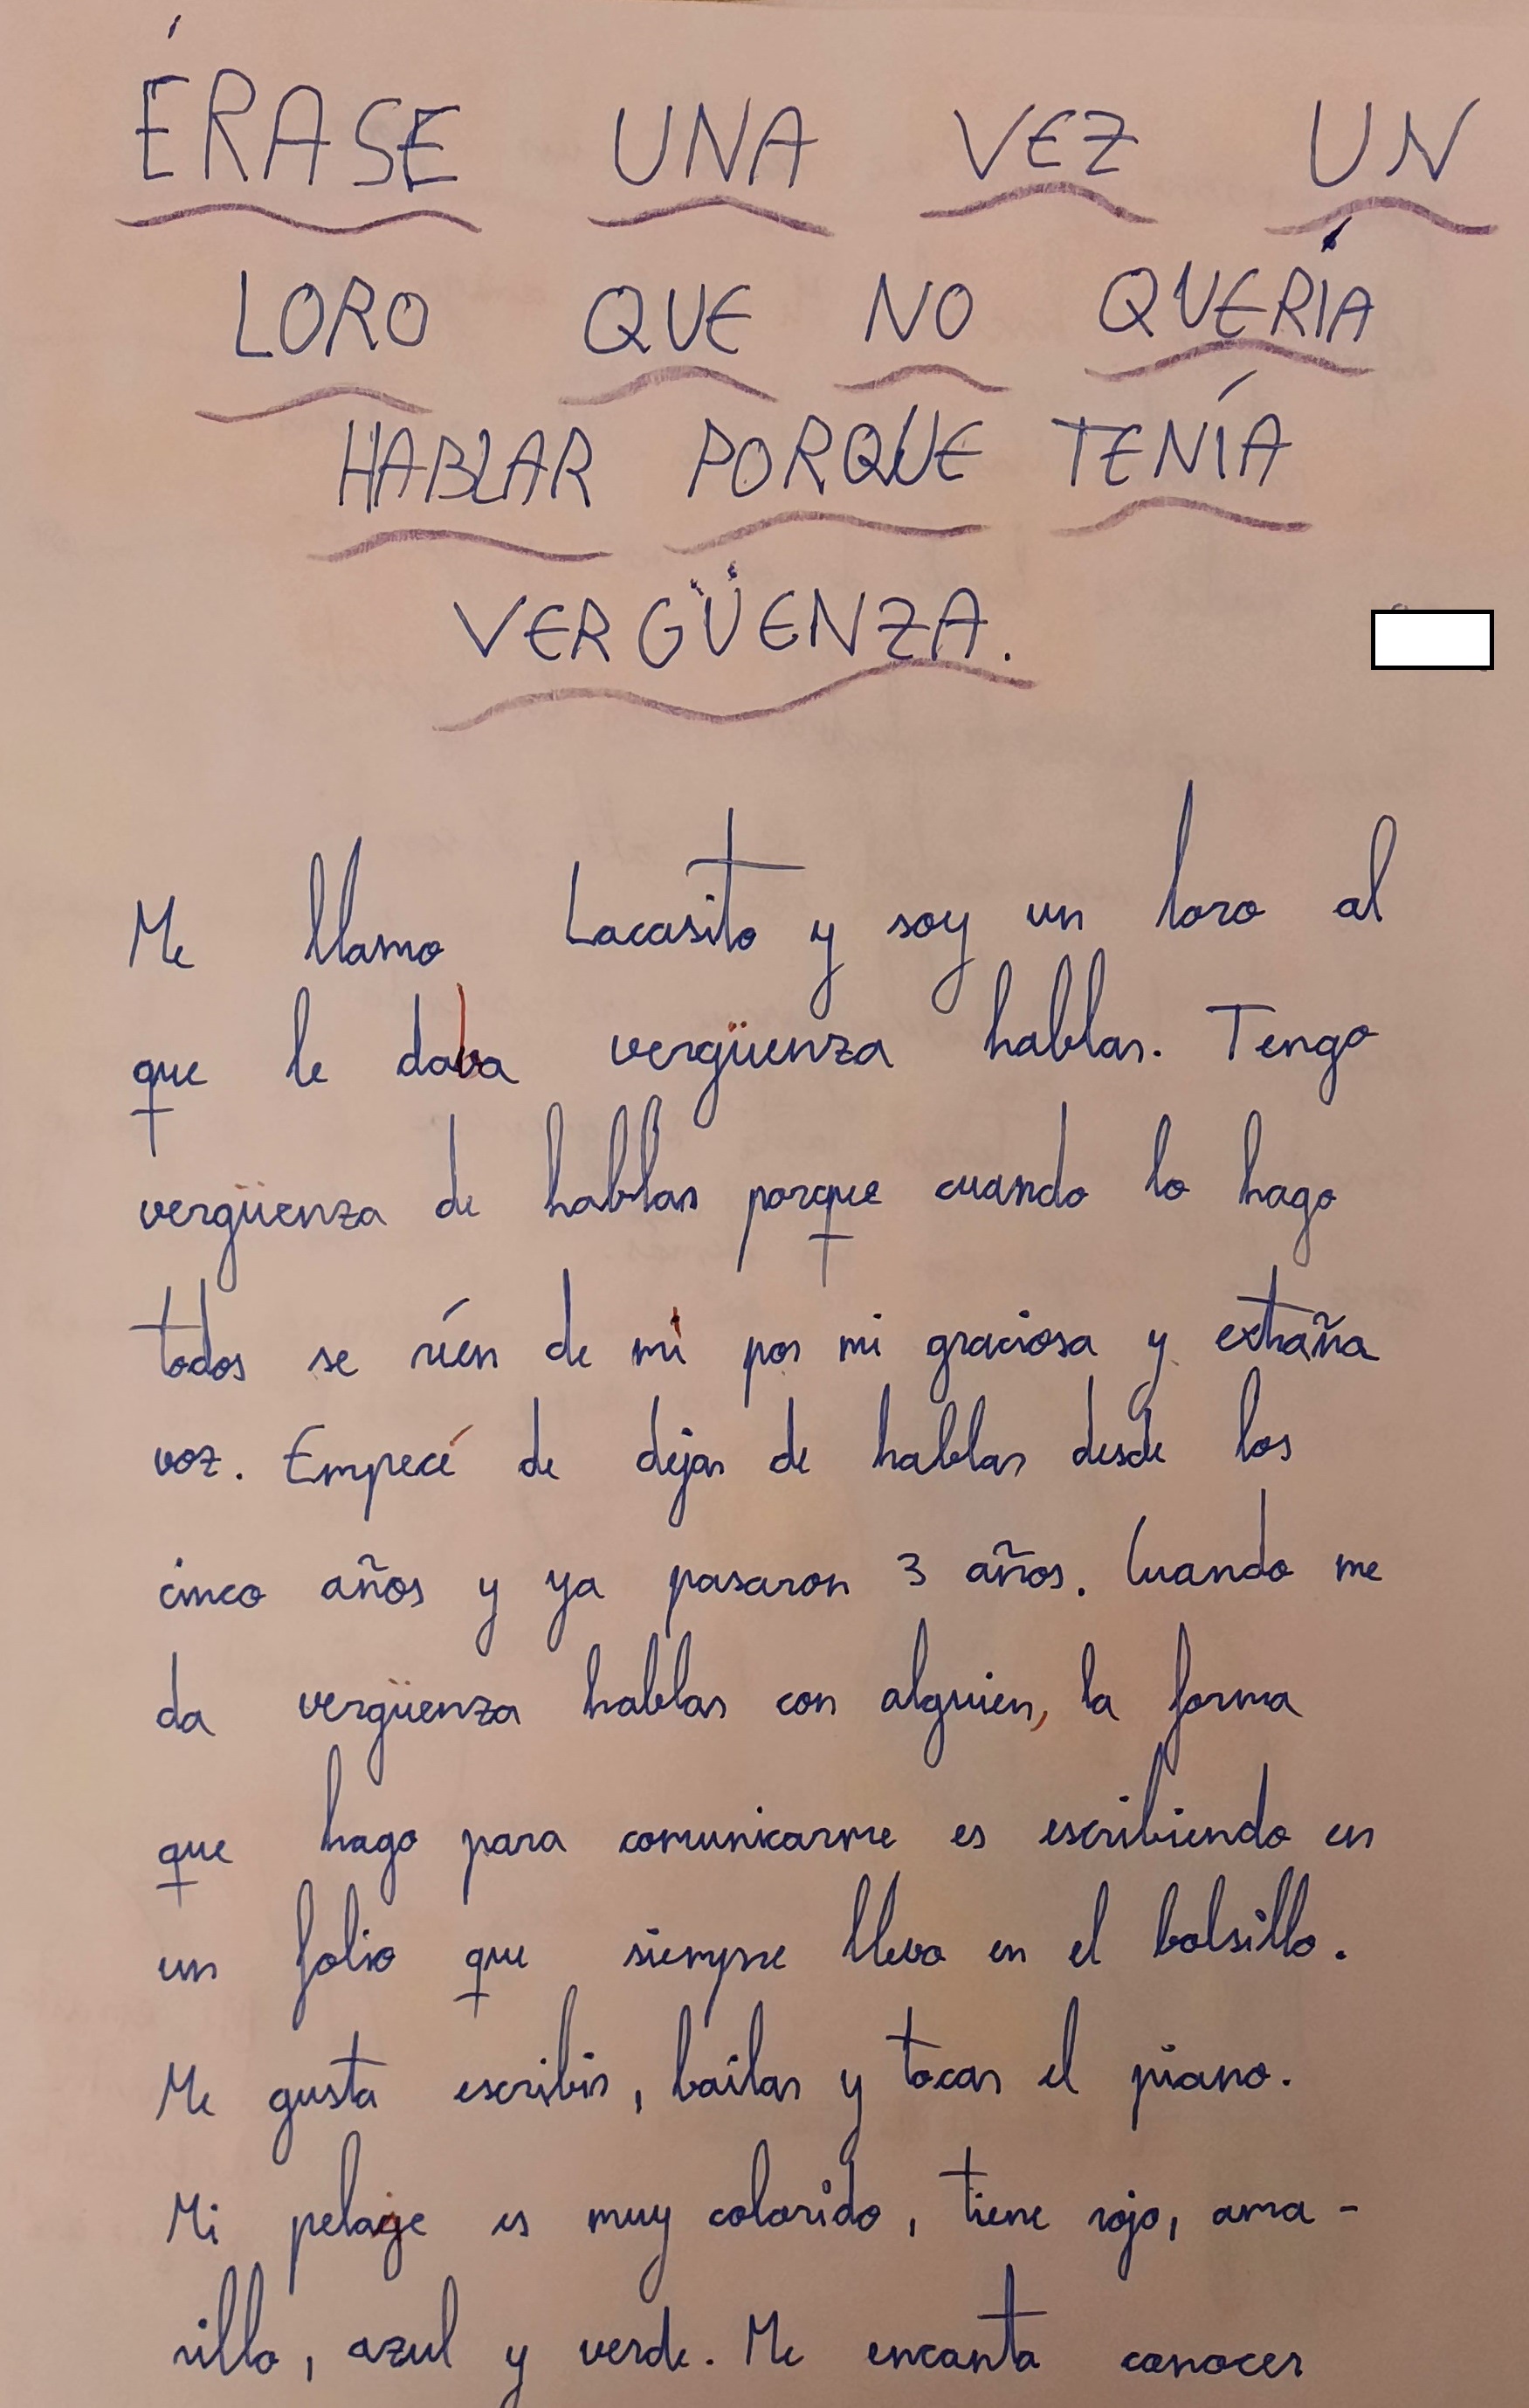 ÉRASE UNA VEZ UN
LORO QUE NO QUERÍA
HABLAR PORQUE TENÍA
VERGÜENZA.
Me llamo Lacasito y soy un loro al
que le daba vergüenza hablar. Tengo
vergüenza de hablar porque cuando lo hago
todos se ríen de mí por mi graciosa y extraña
voz. Empecé de dejar de hablar desde los
cinco años y ya pasaron 3 años. Cuando me
da vergüenza hablar con alguien, la forma
que hago para comunicarme es escribiendo en
un folio que siempre llevo en el bolsillo.
Me gusta escribir, bailar y tocar el piano.
Mi pelaje es muy colorido, tiene rojo, ama-
rillo, azul y verde. Me encanta conocer